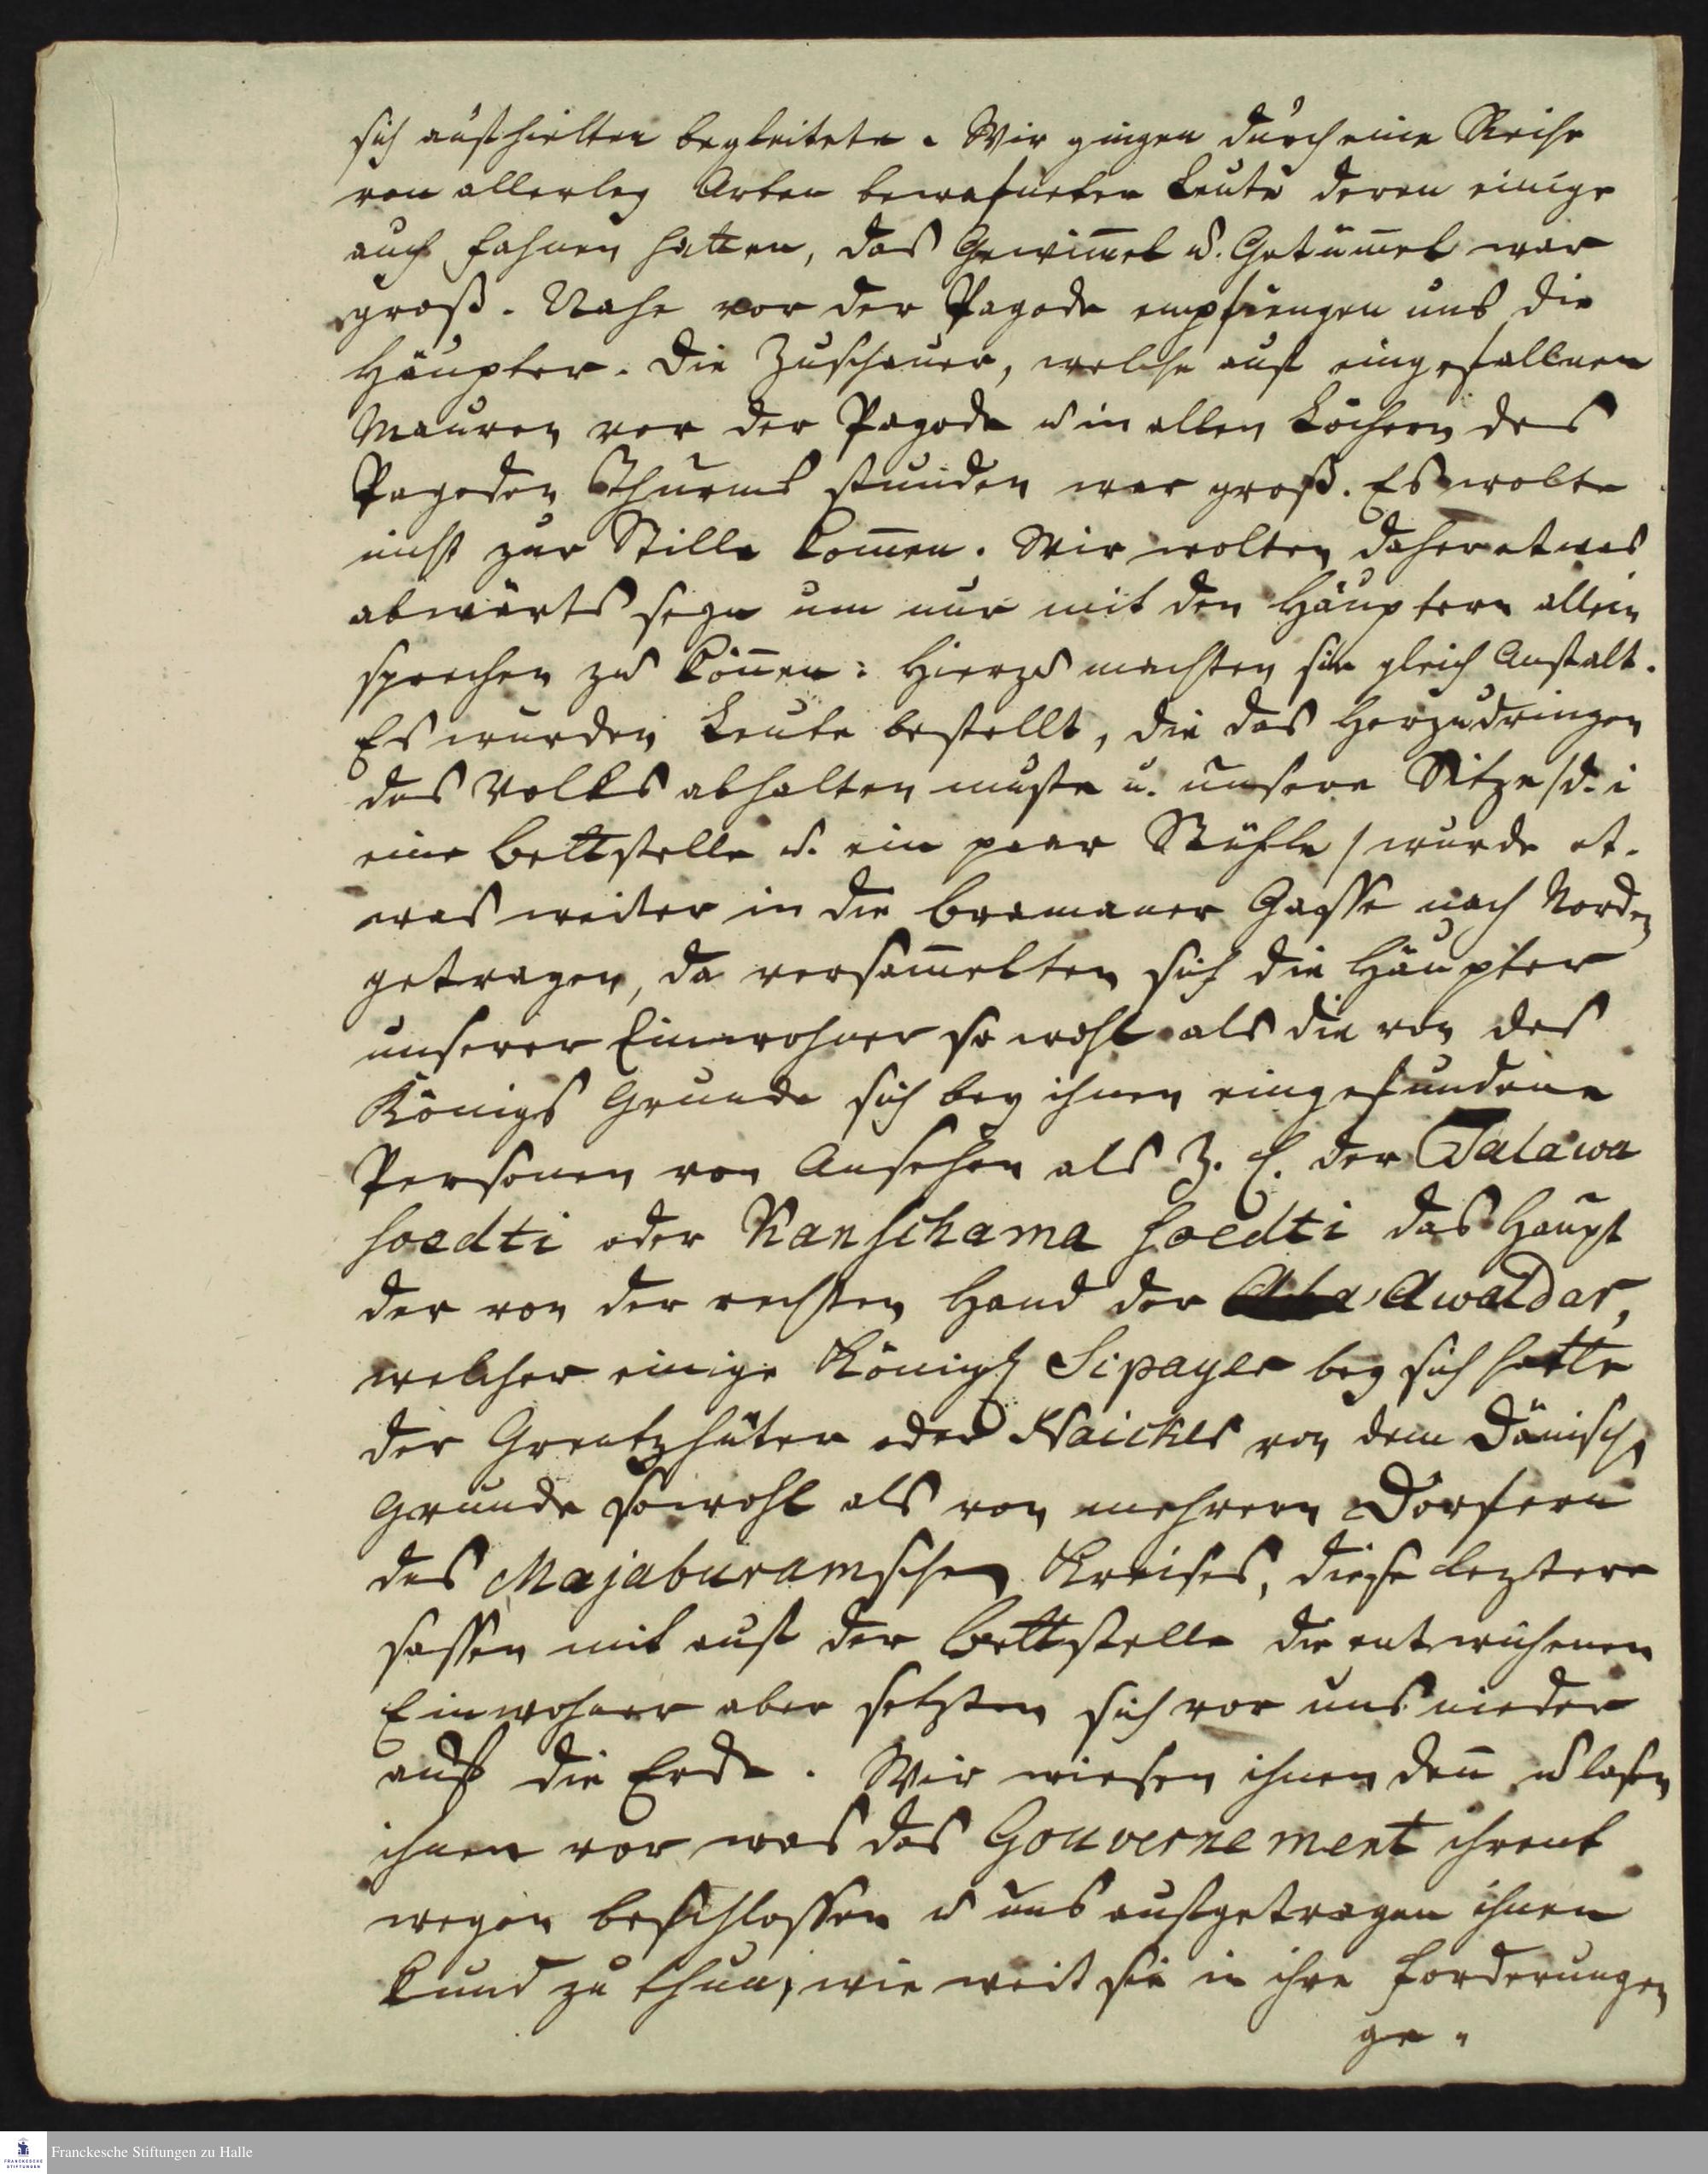 sich aufhielten begleitete. Wir gingen durch eine Reihe
von allerley Arten bewafneten Leute deren einige
auch Fahnen hatten, das Gewim̄el u. Getüm̄el war
groß. Nahe vor der Pagode empfiengen uns die
Häupter. Die Zuschauer, welche auf eingefallenen
Mauren vor der Pagode u in allen Löchern des
Pagoden Thurms stunden war groß. Es wolte
nicht zur Stille kom̄en. Wir wolten daher etwas
abwärts seyn um nur mit den Häuptern allein
sprechen zu kön̄en: Hierzu machten sie gleich Anstalt.
Es wurden Leute bestellt, die das Herzudringen
des Volks abhalten muste u. unsere Sitze /d. i
eine Bettstelle u. ein paar Stühle / wurde et-
was weiter in die Bramaner Gasse nach Norden
getragen, da versam̄elten sich die Häupter
unserer Einwohner so wohl als die von des
Königs Grunde sich bey ihnen eingefundene
Personen von Ansehen als z. E. der Talawa
soedti oder Kanschama soedti das Haupt
der von der rechten Hand der Awaldar,
welcher einige Königl Sipayer bey sich hatte
der Grentzhüter oder Naickes von dem Dänisch
Grunde sowohl als von mehrern Dörfern
des Majaburamschen Kreises, diese leztere
sassen mit auf der Bettstelle die entwichenen
Einwohner aber setzten sich vor uns nieder
auf die Erde. Wir wiesen ihnen den̄ u lasen
ihnen vor was das Gouvernement ihrent
wegen beschlossen u uns aufgetragen ihnen
kund zu thun, wie weit sie in ihre Forderungen
ge-
Franckesche Stiftungen zu Halle
FRANCKESCHE
STIFTUNGEN